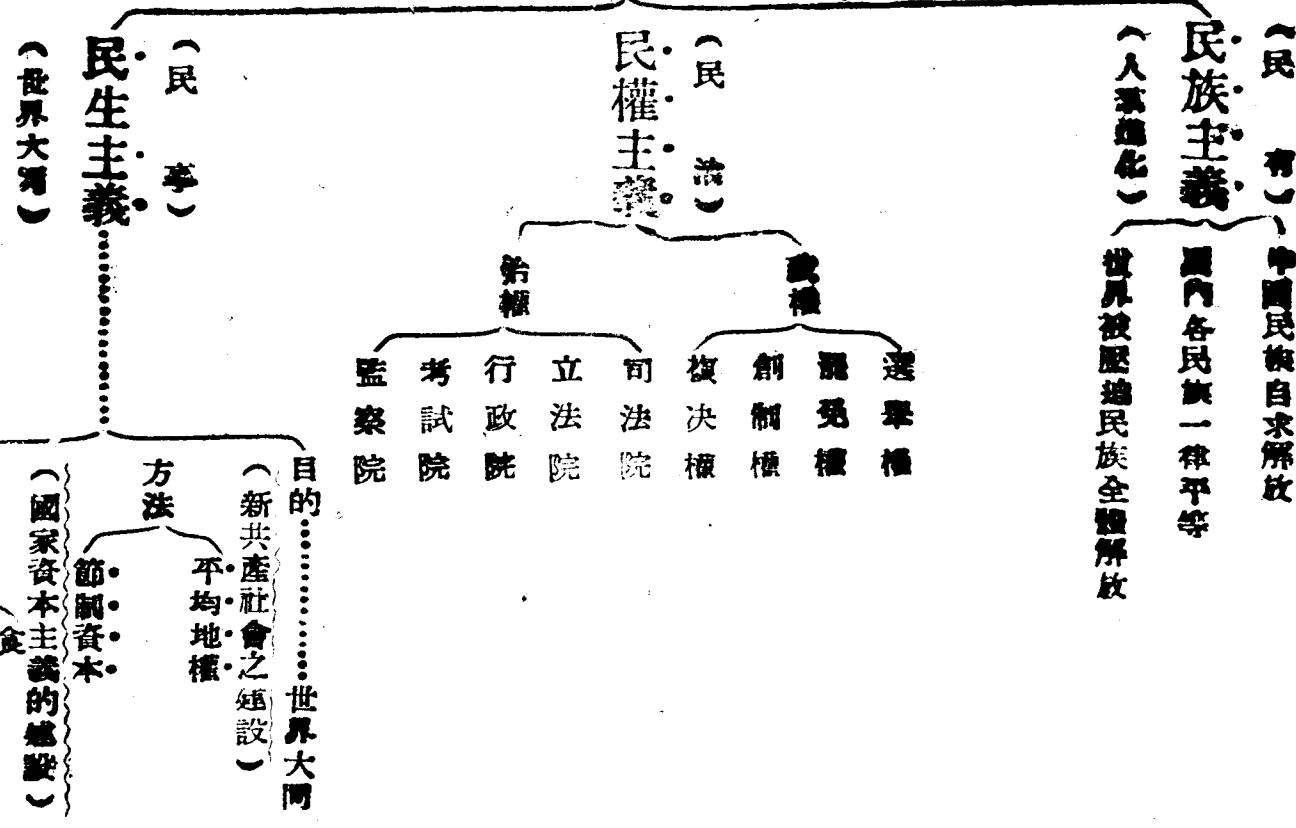 （民有）
民族主義
（人類進化）
中國民族自求解放
國內各民族一律平等
世界被壓迫民族全體解放
（民治）
民權主義
政權
選舉權
罷免權
創制權
複决權
治權
司法院
立法院
行政院
考試院
監察院
（民享）
民生主義
（世界大同）
目的
世界大同
（新共產社會之建設）
方法
平均地權
節制資本
（國家資本主義的建設）
食